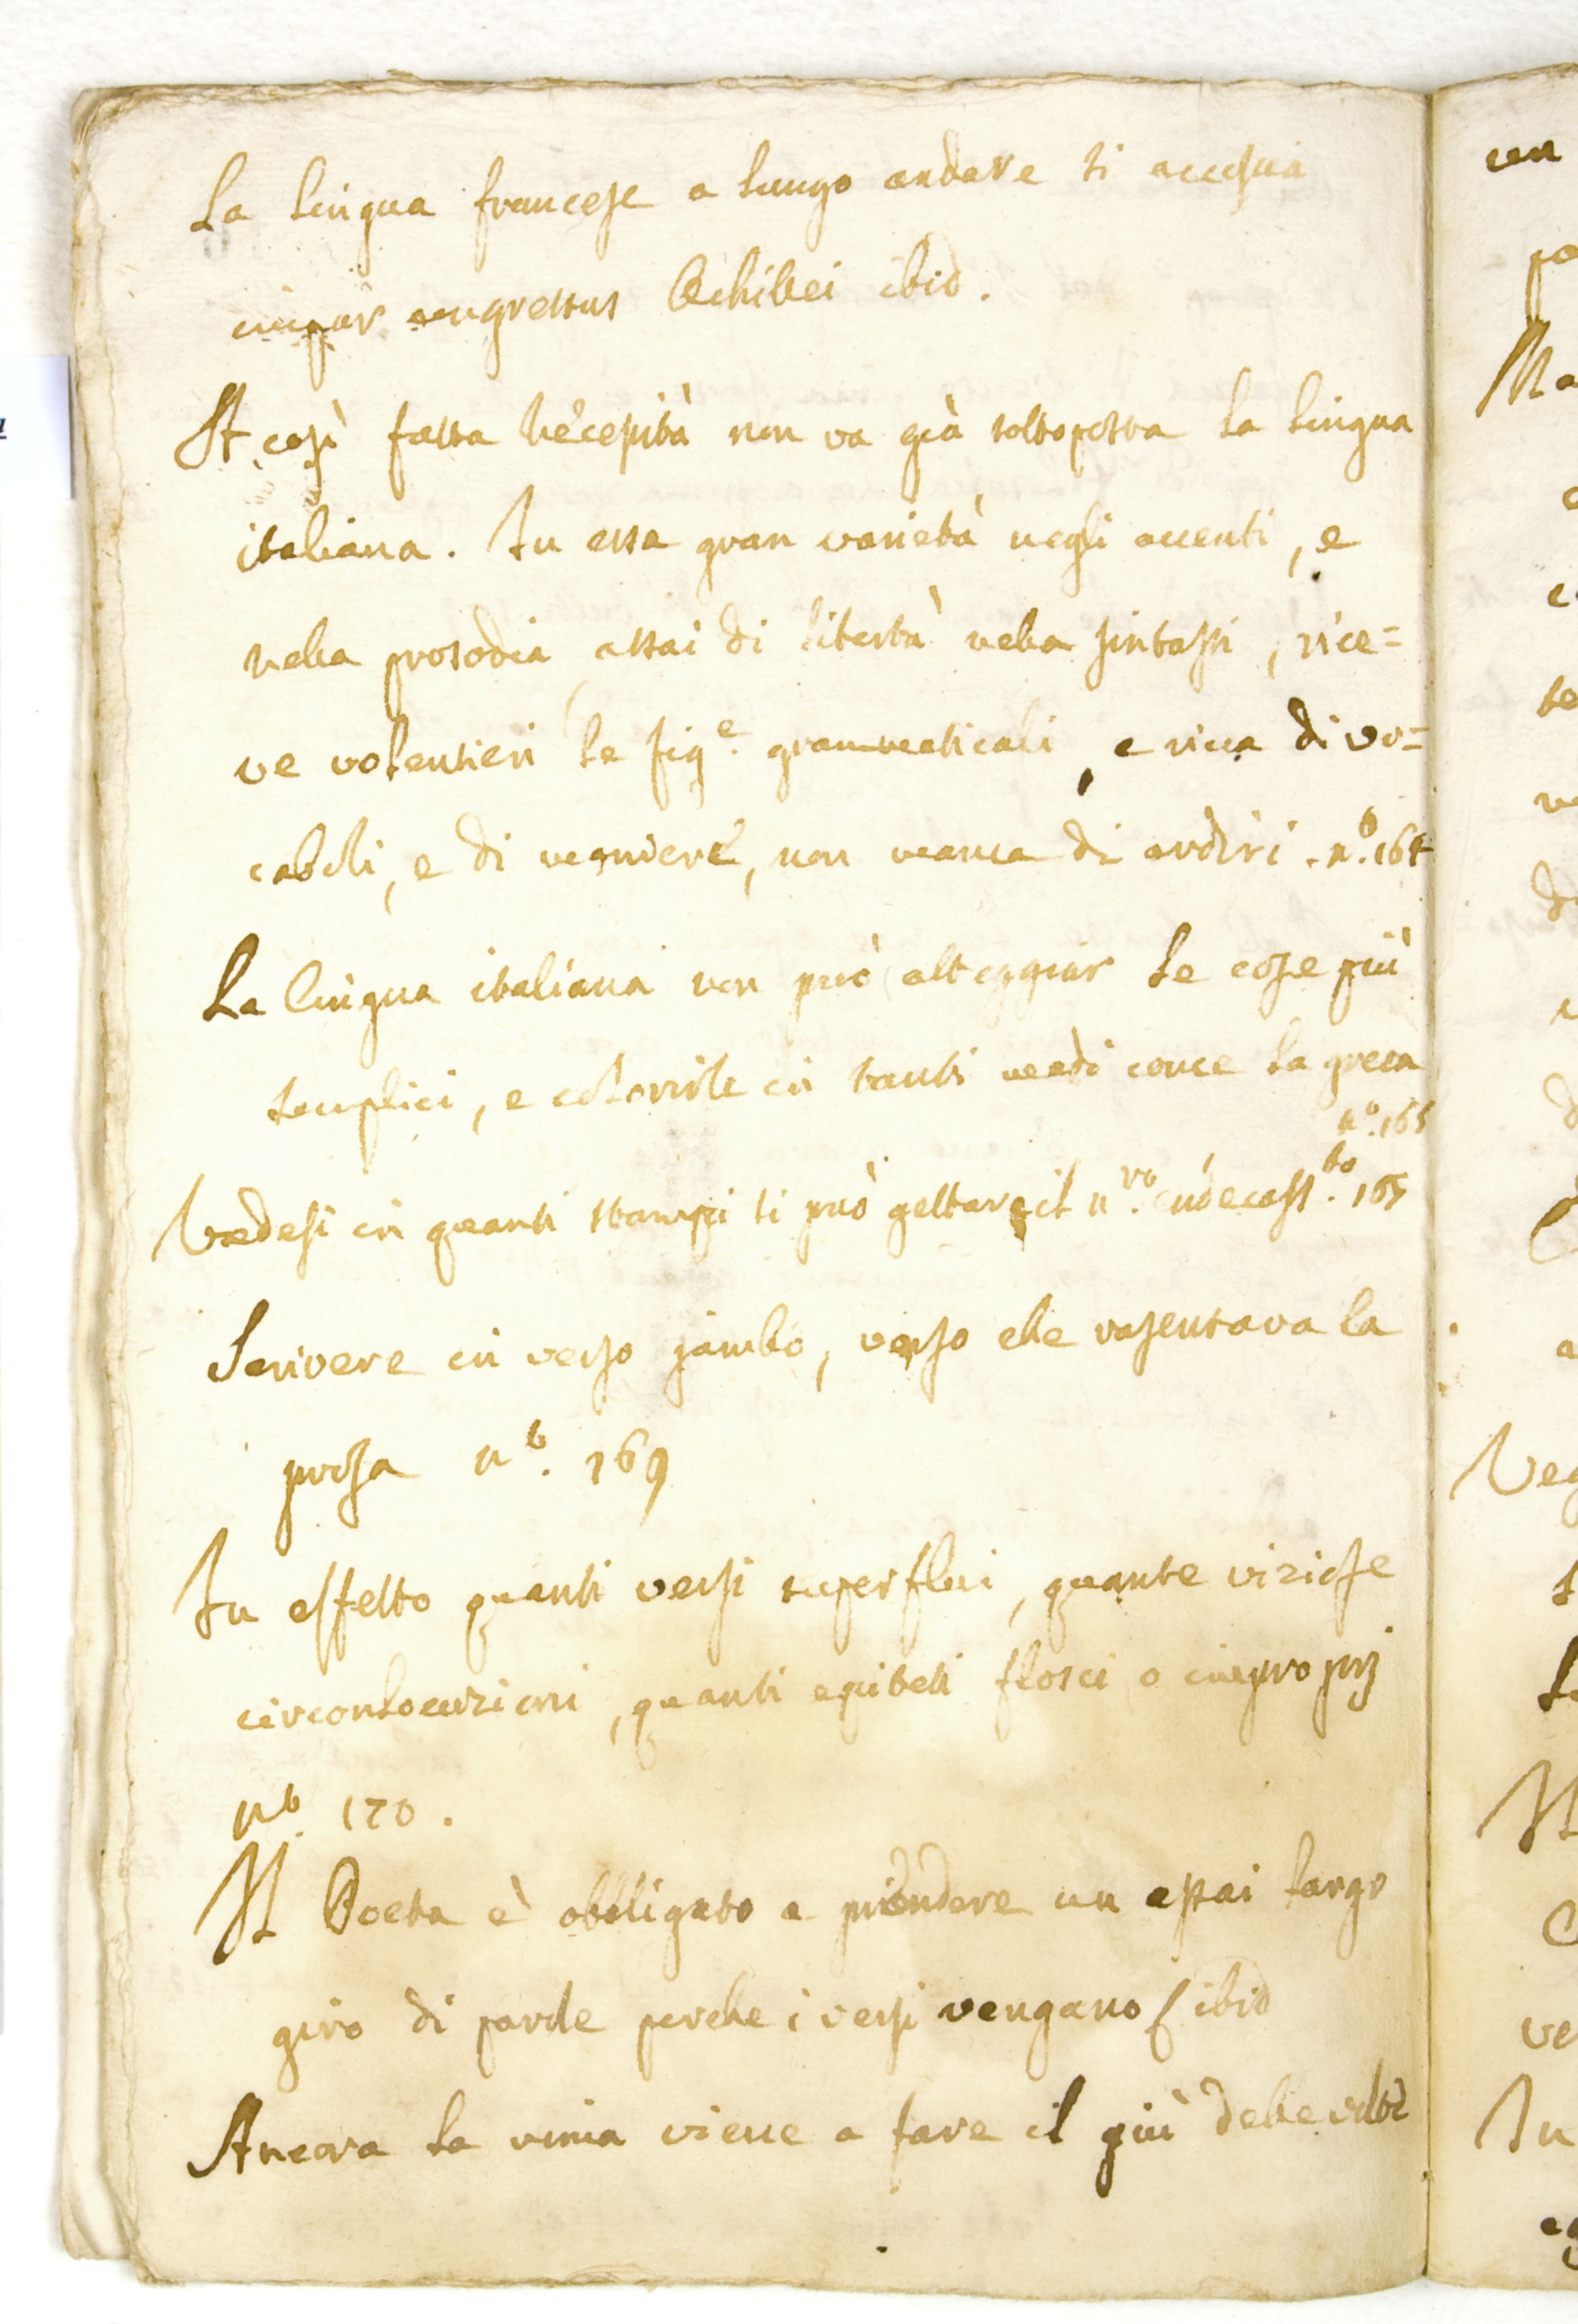 La lingua francese a lungo andare si accascia
impar congressus Achillei ibid.
A così fatta necessità non va già sottoposta la lingua
italiana. In essa gran varietà negli accenti, e
nella prosodia, assai di libertà nella sintassi, rice=
ve volentieri le fig.e grammaticali, e ricca di vo=
caboli, e di maniere, non manca di ardiri. n.o 164
La lingua italiana non può atteggiar le cose più
semplici, e colorirle in tanti modi come la greca
n.o 165
Vedesi in quanti stampi si può gettare il n.ro endecass.bo 165
Scrivere in verso jambo, verso che rasentava la
prosa n.o 169
In effetto quanti versi superflui, quante viziose
circonlocuzioni, quanti epiteti flosci o improprj
n.o 170.
Il Poeta è obbligato a prendere un assai largo
giro di parole perche i versi vengano ibid
Ancora la rima viene a fare il più delle volte
un
Ma
Veg
ve
In